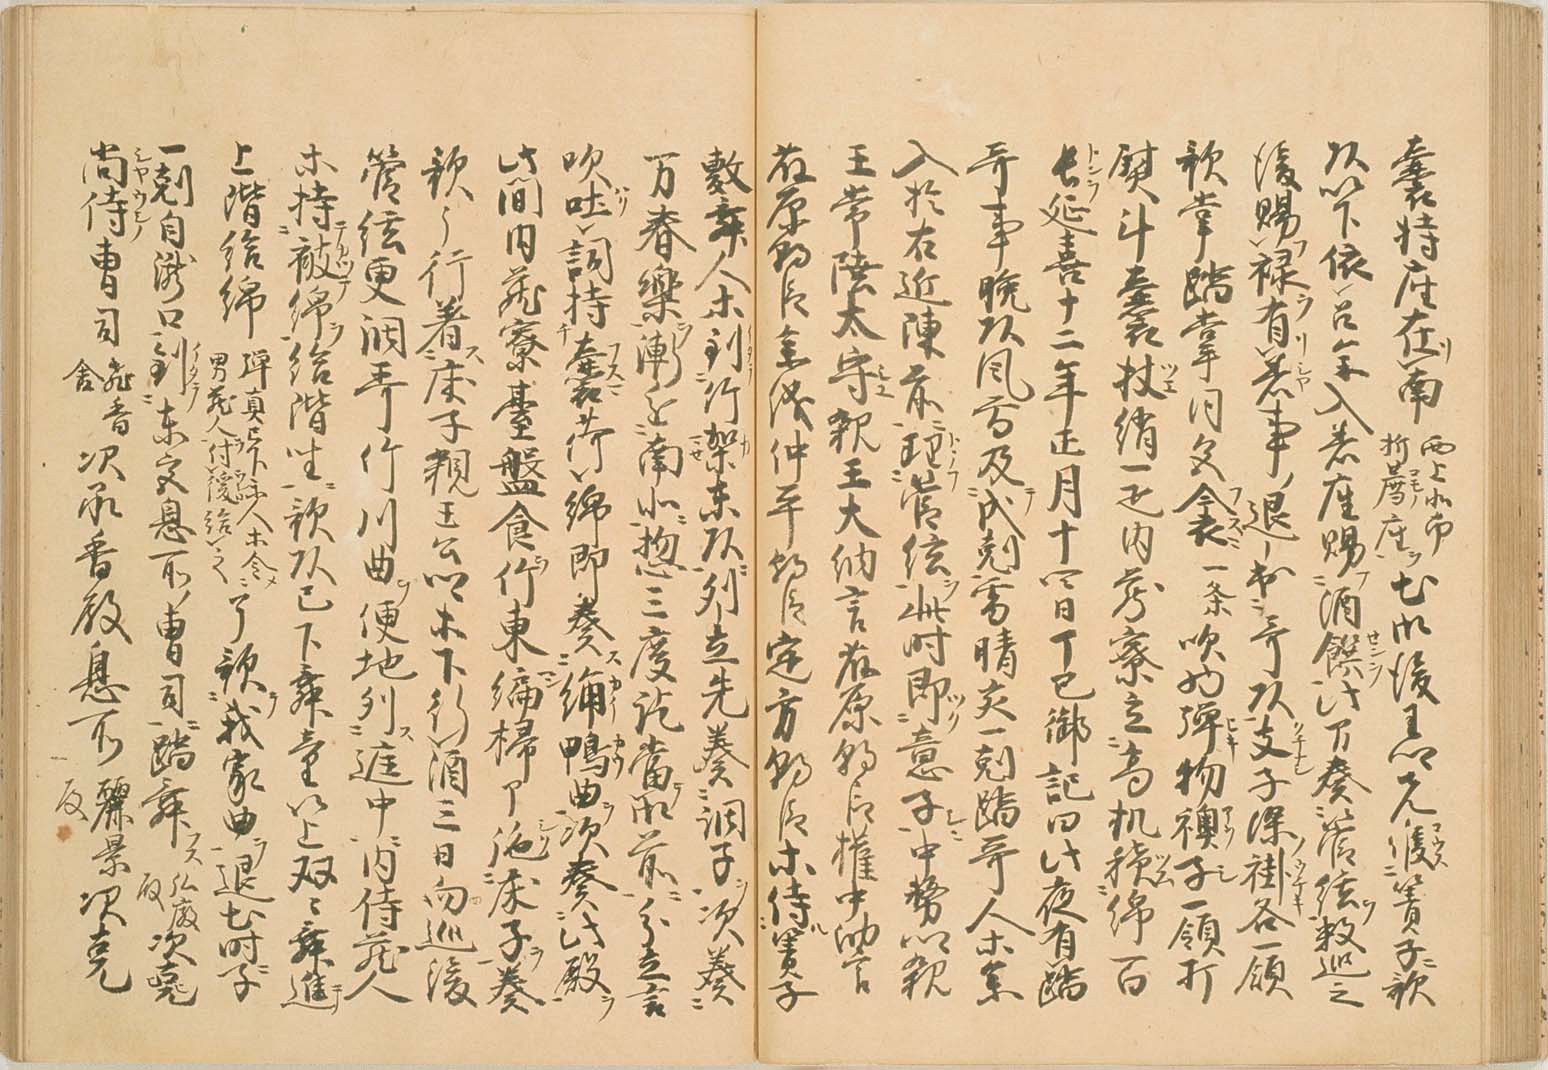 嚢持座在南 西上北面 折薦座 出御後王卿先候簀子歌
頭以下依召参入着座賜酒饌此間奏管絃数巡之
後賜禄有差事退出哥頭支子深褂各一領
歌掌踏掌同文衾一条吹物弾物襖子一領打
熨斗嚢杖綃一疋内蔵寮立高机積綿百
屯延喜十二年正月十四日丁巳御記曰此夜有踏
哥事晩頭風雪及戌剋雪晴亥一剋踏哥人等参
入於右近陣前理管絃此時即意子中務卿親
王常陸太守親王大納言藤原朝臣権中納言
藤原朝臣参議仲平朝臣定方朝臣等侍簀子
敷舞人等到竹架東頭列立先奏調子次奏
万春樂漸々南北惣三度訖當御前分立言
吹吐詞持嚢荷綿即奏絹鴨曲次奏此殿
此間内蔵寮臺盤食竹東編掃了施床子奏
歌了行着床子親王公卿等下行酒三日向巡後
管絃更調哥竹川曲便地列庭中内侍蔵人
等持被綿給階坐歌頭已下舞童以上双々舞進
上階給綿 弾真已下踏人等令 男蔵人付後給之 了歌我家曲退出時子
一剋自瀧口到東文息所曹司踏舞 弘徽殿 次堯
尚侍曹司 飛香舎 次承香殿息所 麗景次克 一反